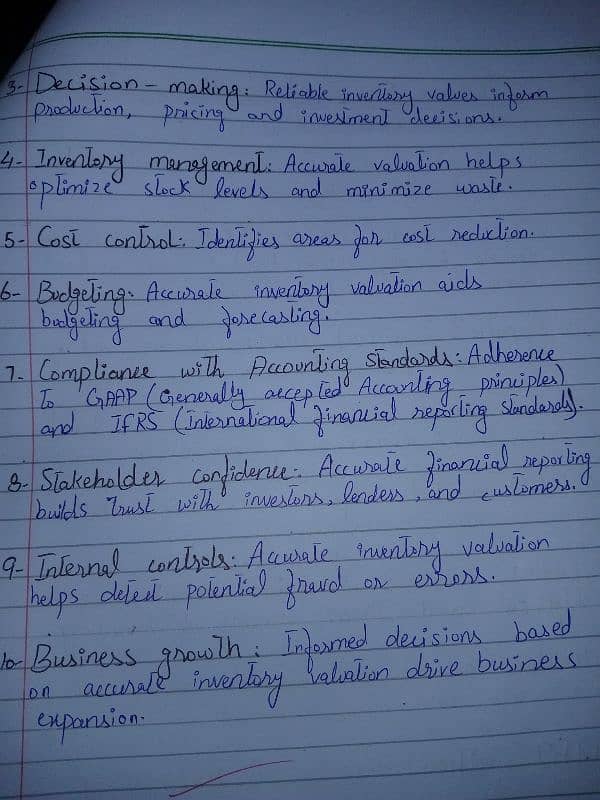 3- Decision - making: Reliable inventory values inform
production, pricing and investment decisions.
4- Inventory management: Accurate valuation helps
optimize stock levels and minimize waste.
5- Cost control: Identifies areas for cost reduction.
6- Budgeting: Accurate inventory valuation aids
budgeting and forecasting.
7- Compliance with Accounting Standards: Adherence
to GAAP (Generally accepted Accounting principles)
and IFRS (International financial reporting standards).
8- Stakeholder confidence: Accurate financial reporting
builds trust with investors, lenders, and customers.
9- Internal controls: Accurate inventory valuation
helps detect potential fraud or errors.
10- Business growth: Informed decisions based
on accurate inventory valuation drive business
expansion.